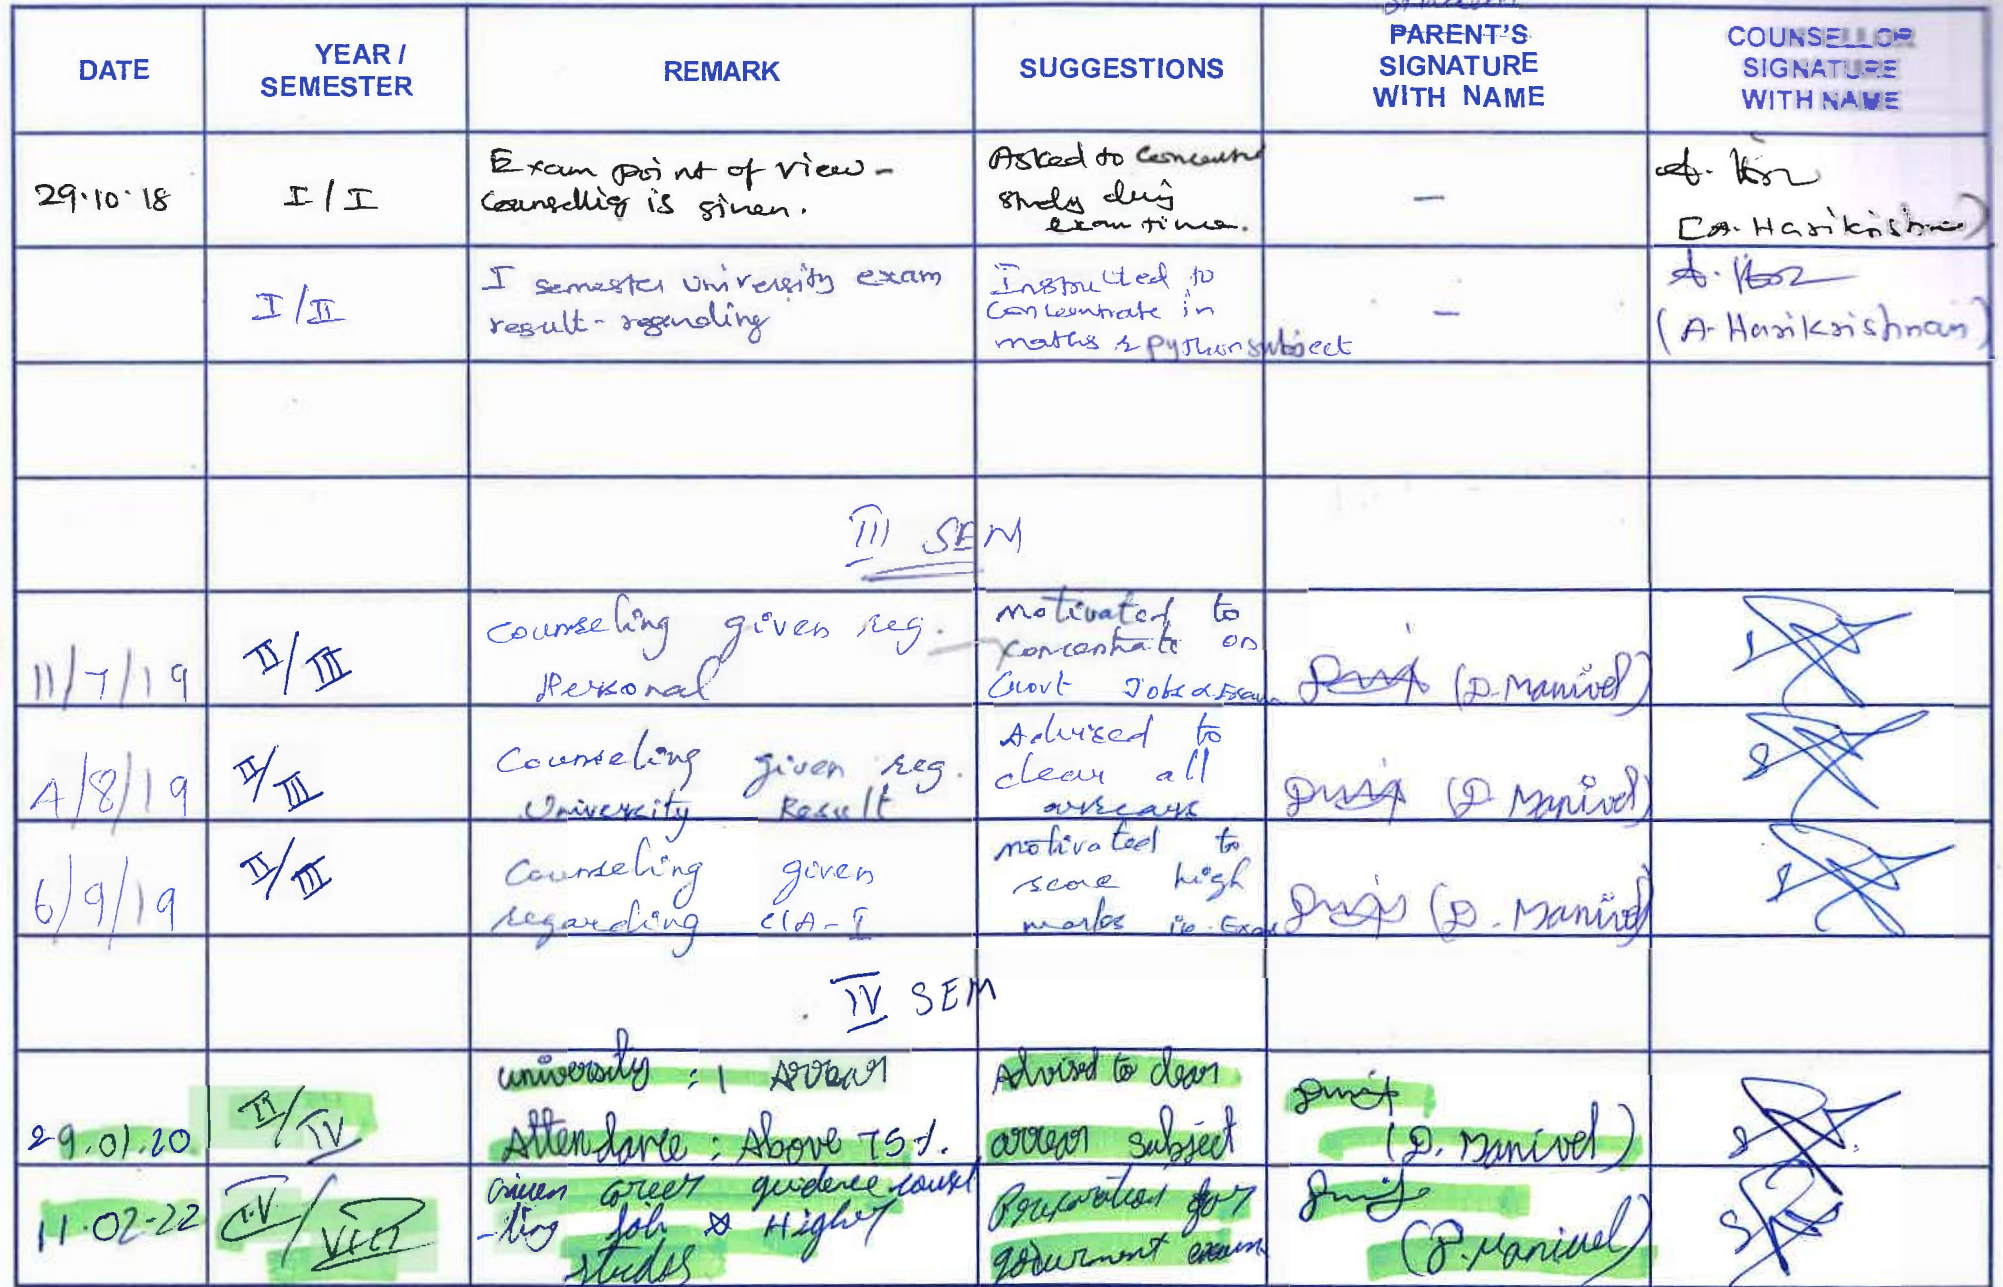 DATE
YEAR /
SEMESTER
REMARK
SUGGESTIONS
PARENT'S
SIGNATURE
WITH NAME
COUNSELLOR
SIGNATURE
WITH NAME
29.10.18
I / I
Exam point of view -
Counselling is given.
Asked to
study
exam time.
—
(A. Harikrishnan)
I / II
I semester University exam
result - regarding
Instructed to
Concentrate in
maths & python subject
—
(A. Harikrishnan)
III SEM
11/7/19
II/III
Counseling given reg.
Personal
motivated to
concentrate on
Govt Jobs & Exam
(D. Manivel)
4/8/19
II/III
Counseling given reg.
University Result
Advised to
clear all
arrears
(D. Manivel)
6/9/19
II/III
Counseling given
regarding CIA-I
motivated to
score high
marks in Exam
(D. Manivel)
IV SEM
29.01.20
II/IV
university : 1 Arrear
Attendance : Above 75%.
Advised to clear
arrear subject
(D. Manivel)
11.02-22
IV/VIII
Given career guidence counsel
-ling job & Higher
studes
Preparation for
government exam
(D. Manivel)